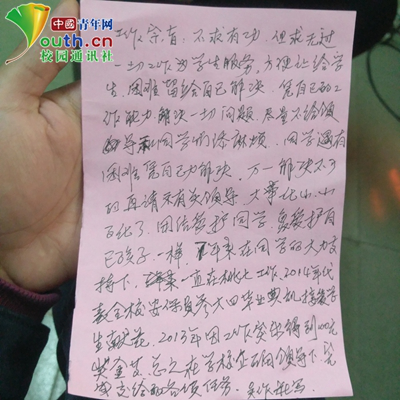 中国青年网
Youth.cn
校园通讯社
工作宗旨：不求有功，但求无过
一切工作为学生服务，方便让给学
生，困难留给自己解决，凭自己的工
作能力解决一切问题，尽量不给领
导和同学们添麻烦，同学遇有
困难凭自己力解决，万一解决不了
的再请示有关领导，大事化小，小
百化了，团结爱护同学，象爱护自
己孩子一样，年来在同学的大力支
持下，一直在桃七工作，2014年代
表全校安保员参大四毕业典礼接受学
生献花，2013年因工作突出得到100元
奖金，总之在学校正确领导下完
成交给的各项任务。